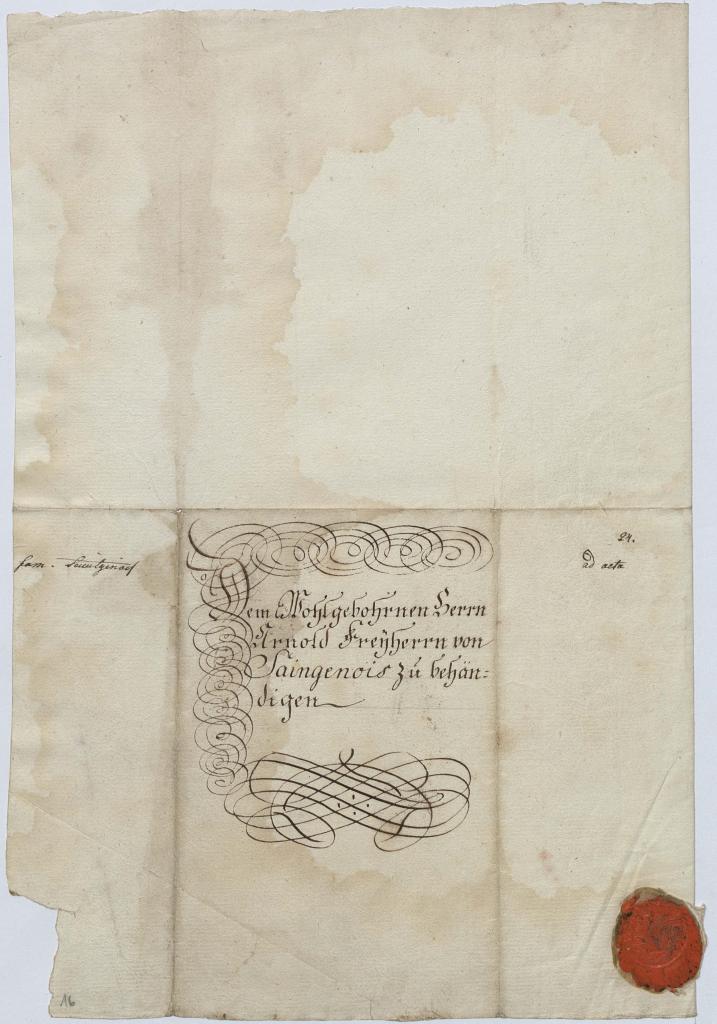 24.
fam.
ad acta
Dem Wohlgebohrnen Herrn
Arnold Freÿherrn von
Saingenois zu behän=
digen
16